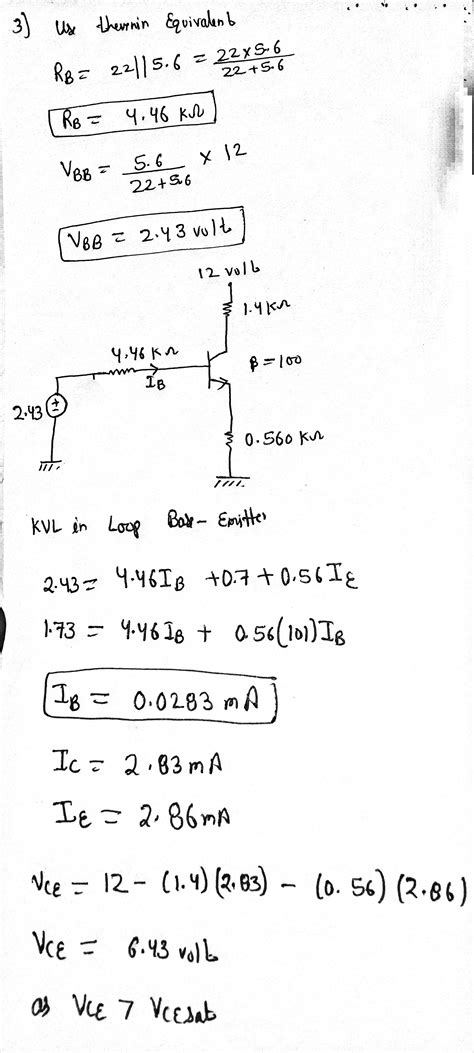 3] Use thevnin Equivalent
RB = 22||5.6 = 22x5.6 / 22+5.6
RB = 4.46 kΩ
VBB = 5.6 / 22+5.6 x 12
VBB = 2.43 volt
12 volt
1.4kΩ
4.46 kΩ
β=100
IB
2.43
0.560 kΩ
KVL in Loop Base-Emitter
2.43= 4.46IB +0.7+0.56IE
1.73 = 4.46IB + 0.56(101)IB
IB = 0.0283 mA
IC = 2.83mA
IE = 2.86mA
VCE = 12 - (1.4)(2.83) - (0.56)(2.86)
VCE = 6.43 volt
as VCE > VCEsat